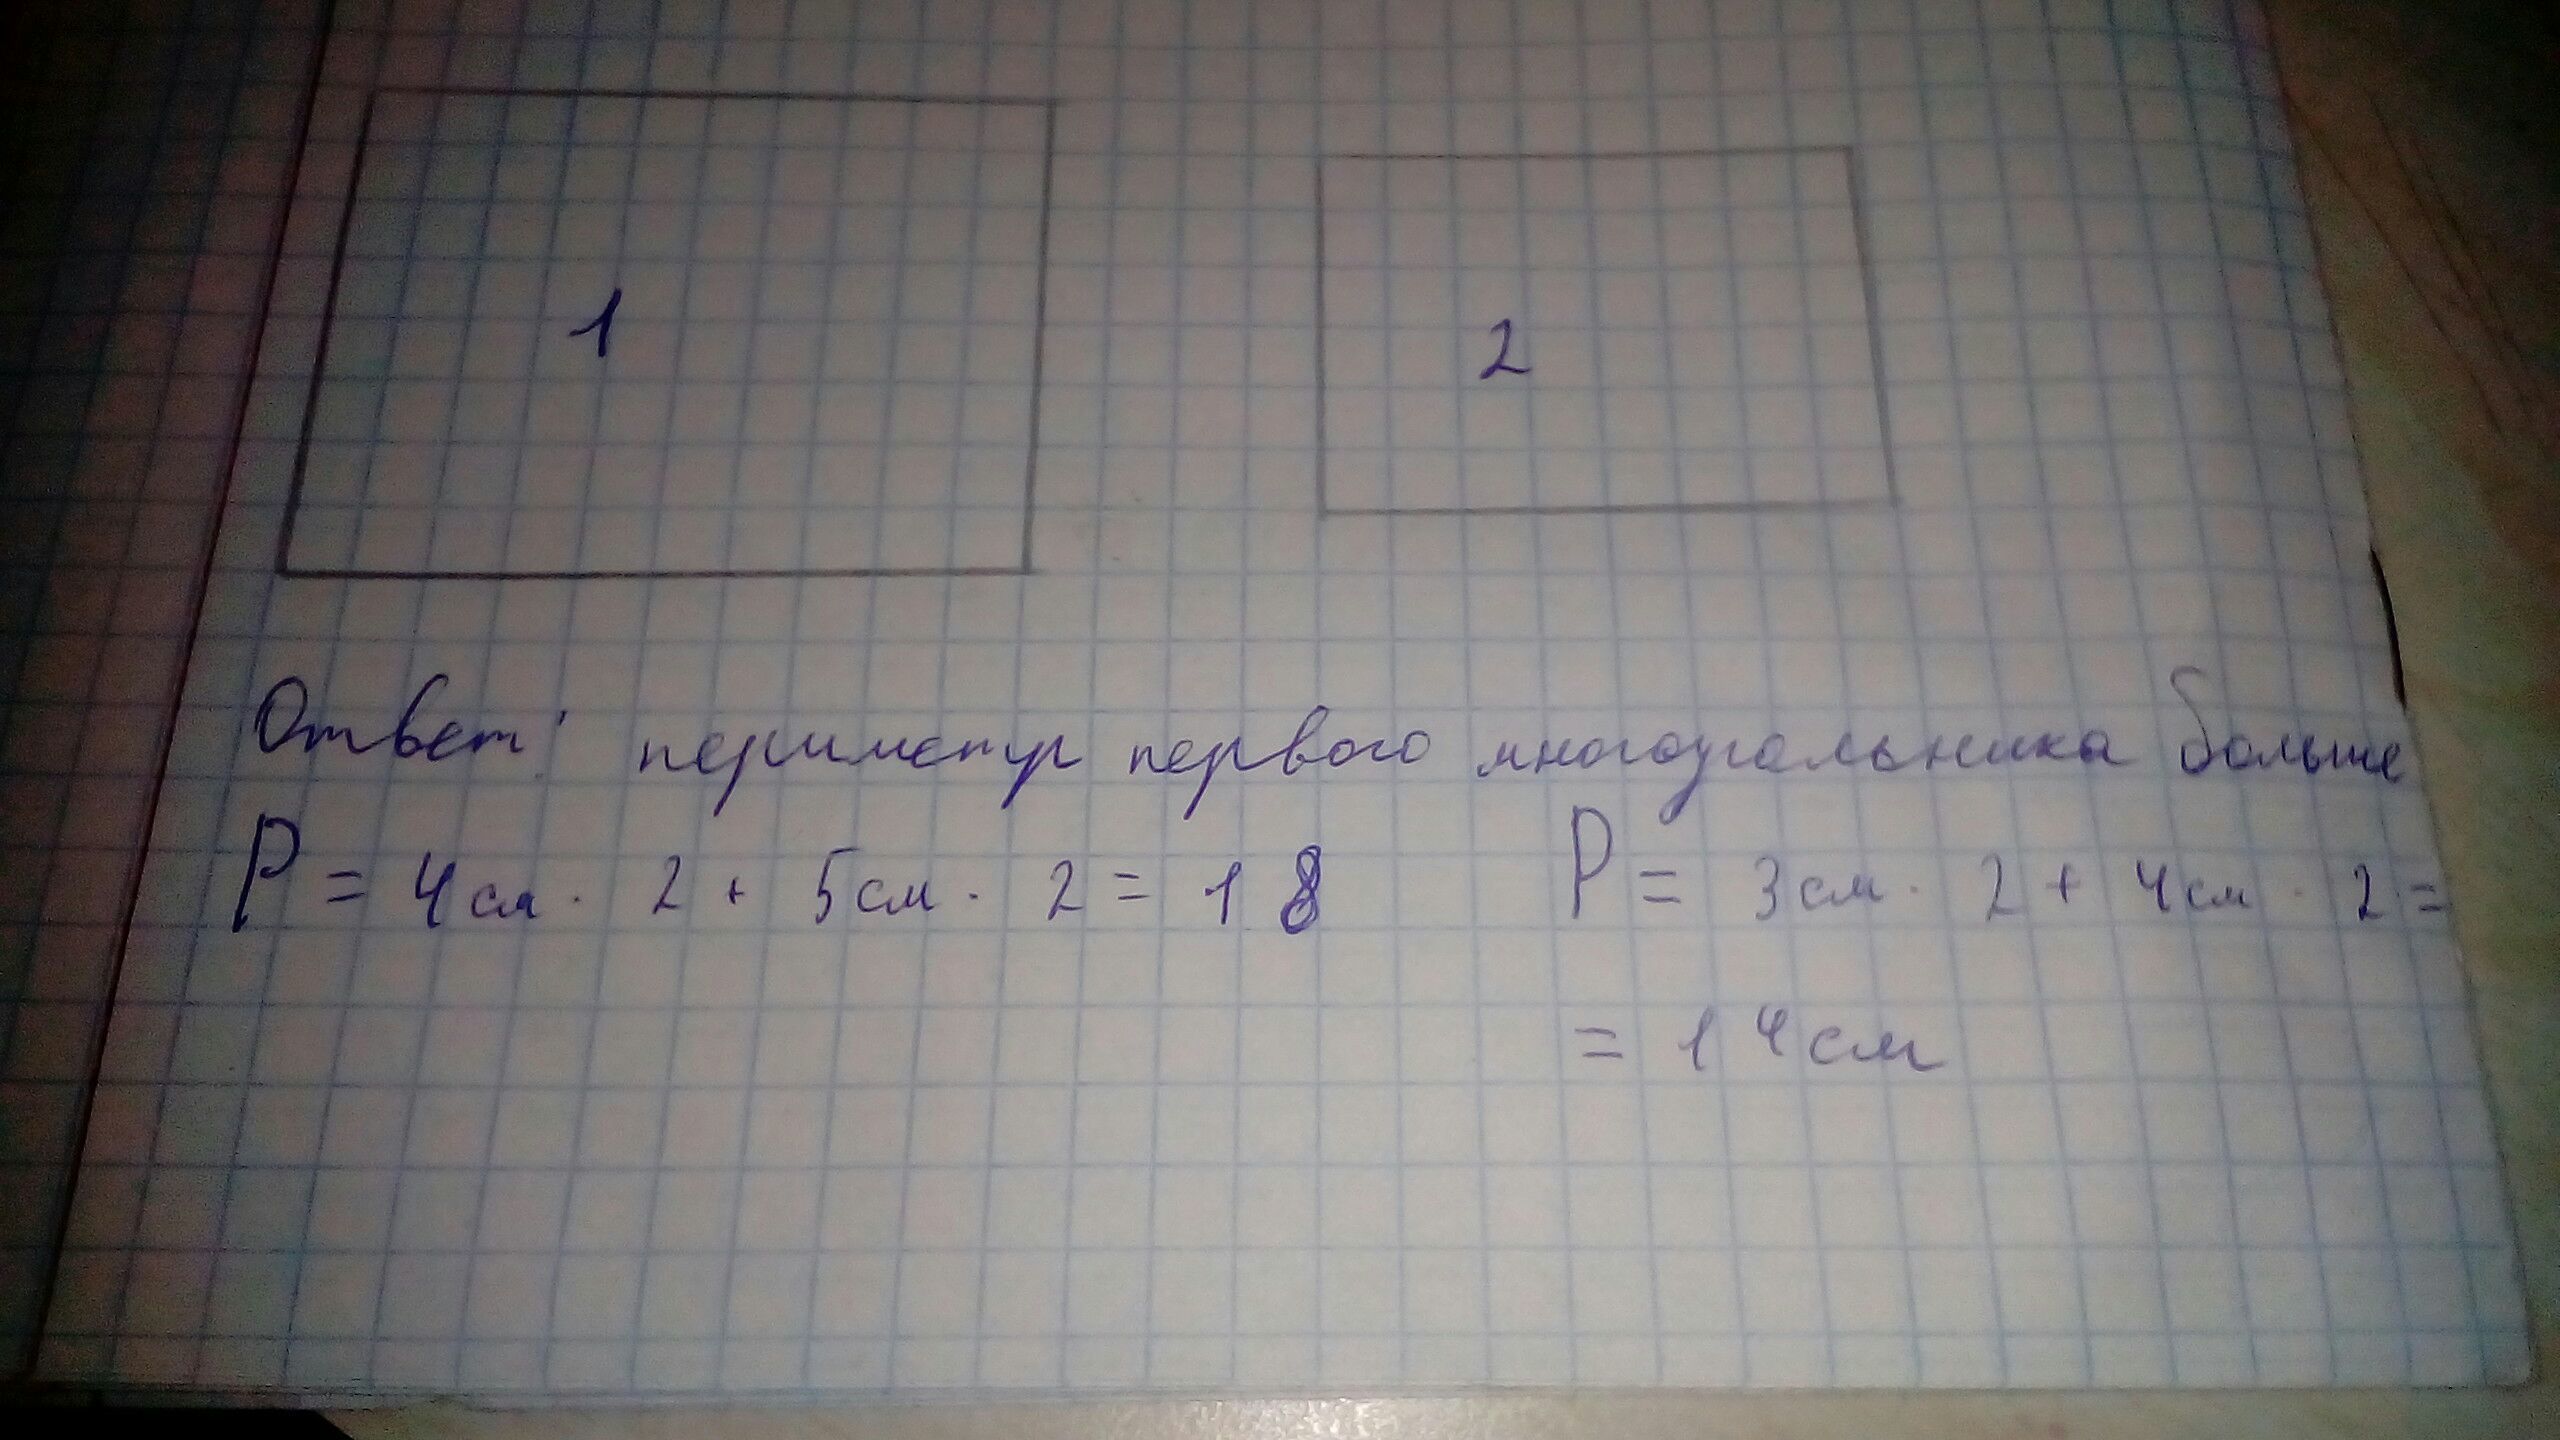 1
2
Ответ: периметр первого многоугольника больше
P = 4см · 2 + 5см · 2 = 18
P = 3см · 2 + 4см · 2 =
= 14см